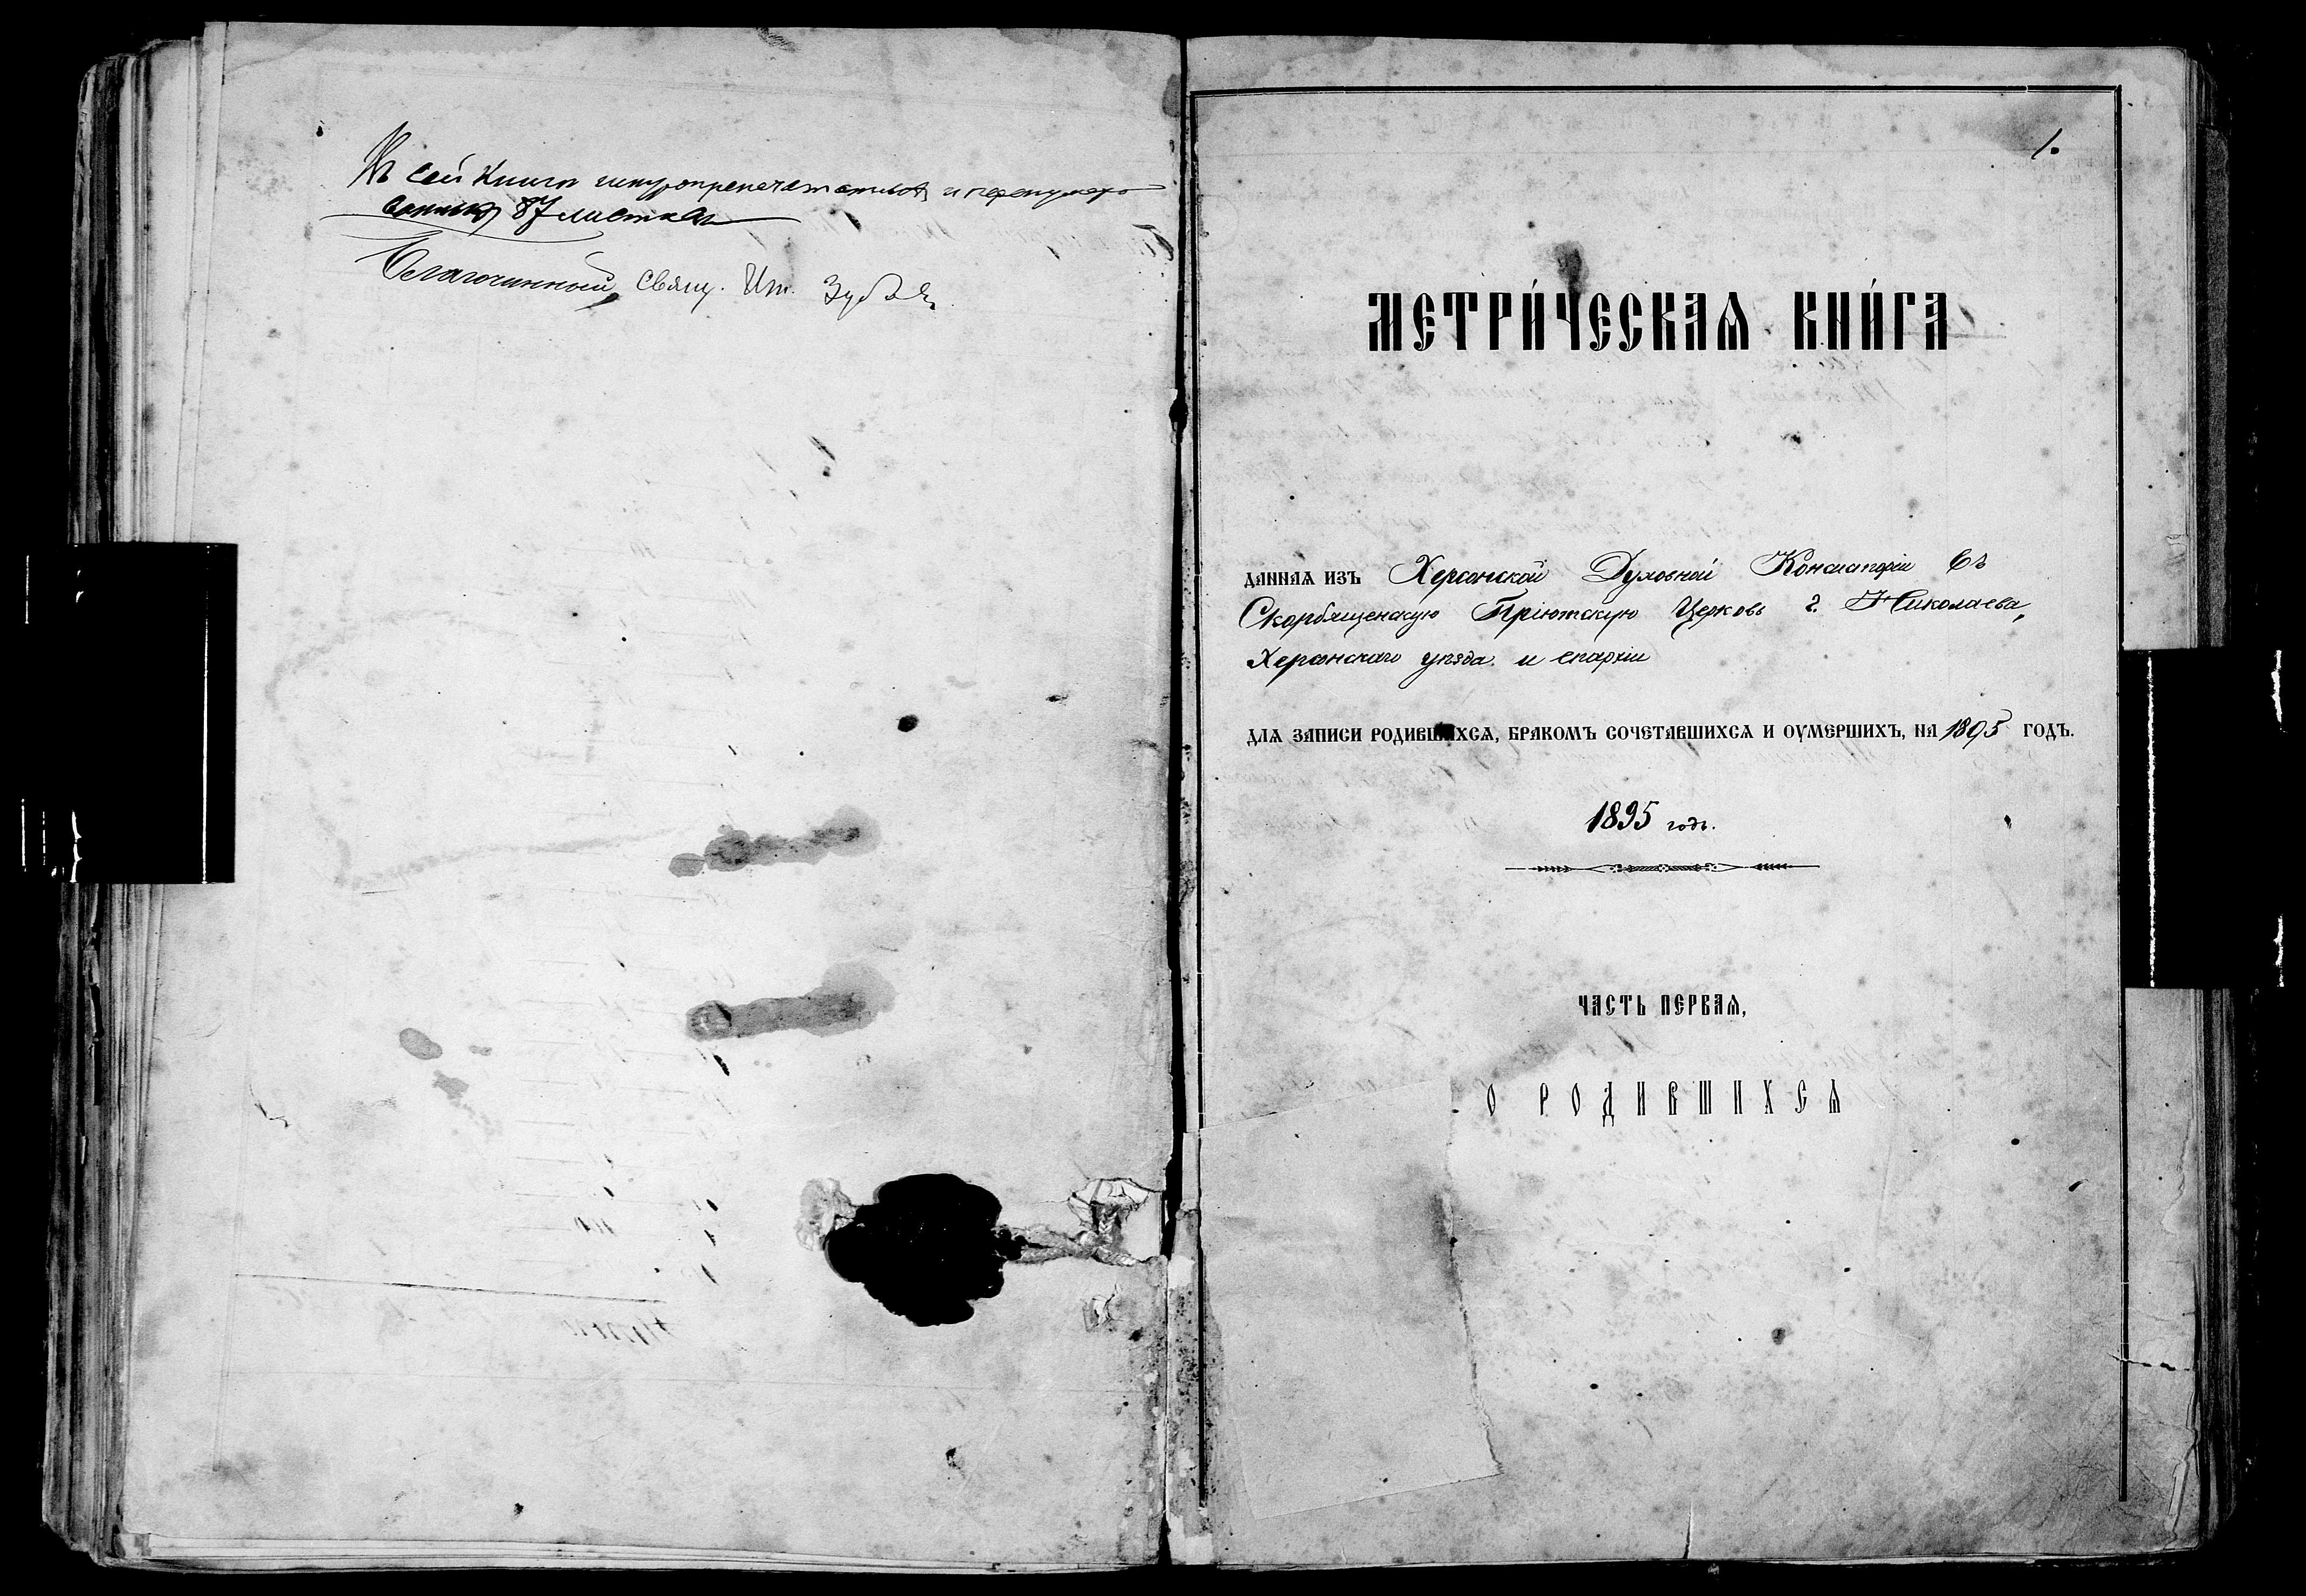 Въ сей Книгѣ шнуропрепечатанныхъ и перенумеро
ванныхъ 87 листовъ
Благочинный, Свящ. Ил. Зубъ
1.
МЕТРИ́ЧЕСКАѦ КНИ́ГА
ДАННАѦ ИЗЪ Херсонской Духовной Консисторіи Въ
Скорбященскую Пріютскую Церковь г. Николаева,
Херсонскаго уѣзда и епархіи
ДЛѦ ЗАПИСИ РОДИВШИХСѦ, БРАКОМЪ СОЧЕТАВШИХСѦ И ОУМЕРШИХЪ, НА 1895 ГОДЪ.
1895 годъ.
ЧАСТЬ ПЕРВАѦ,
О РОДИВШИХСѦ